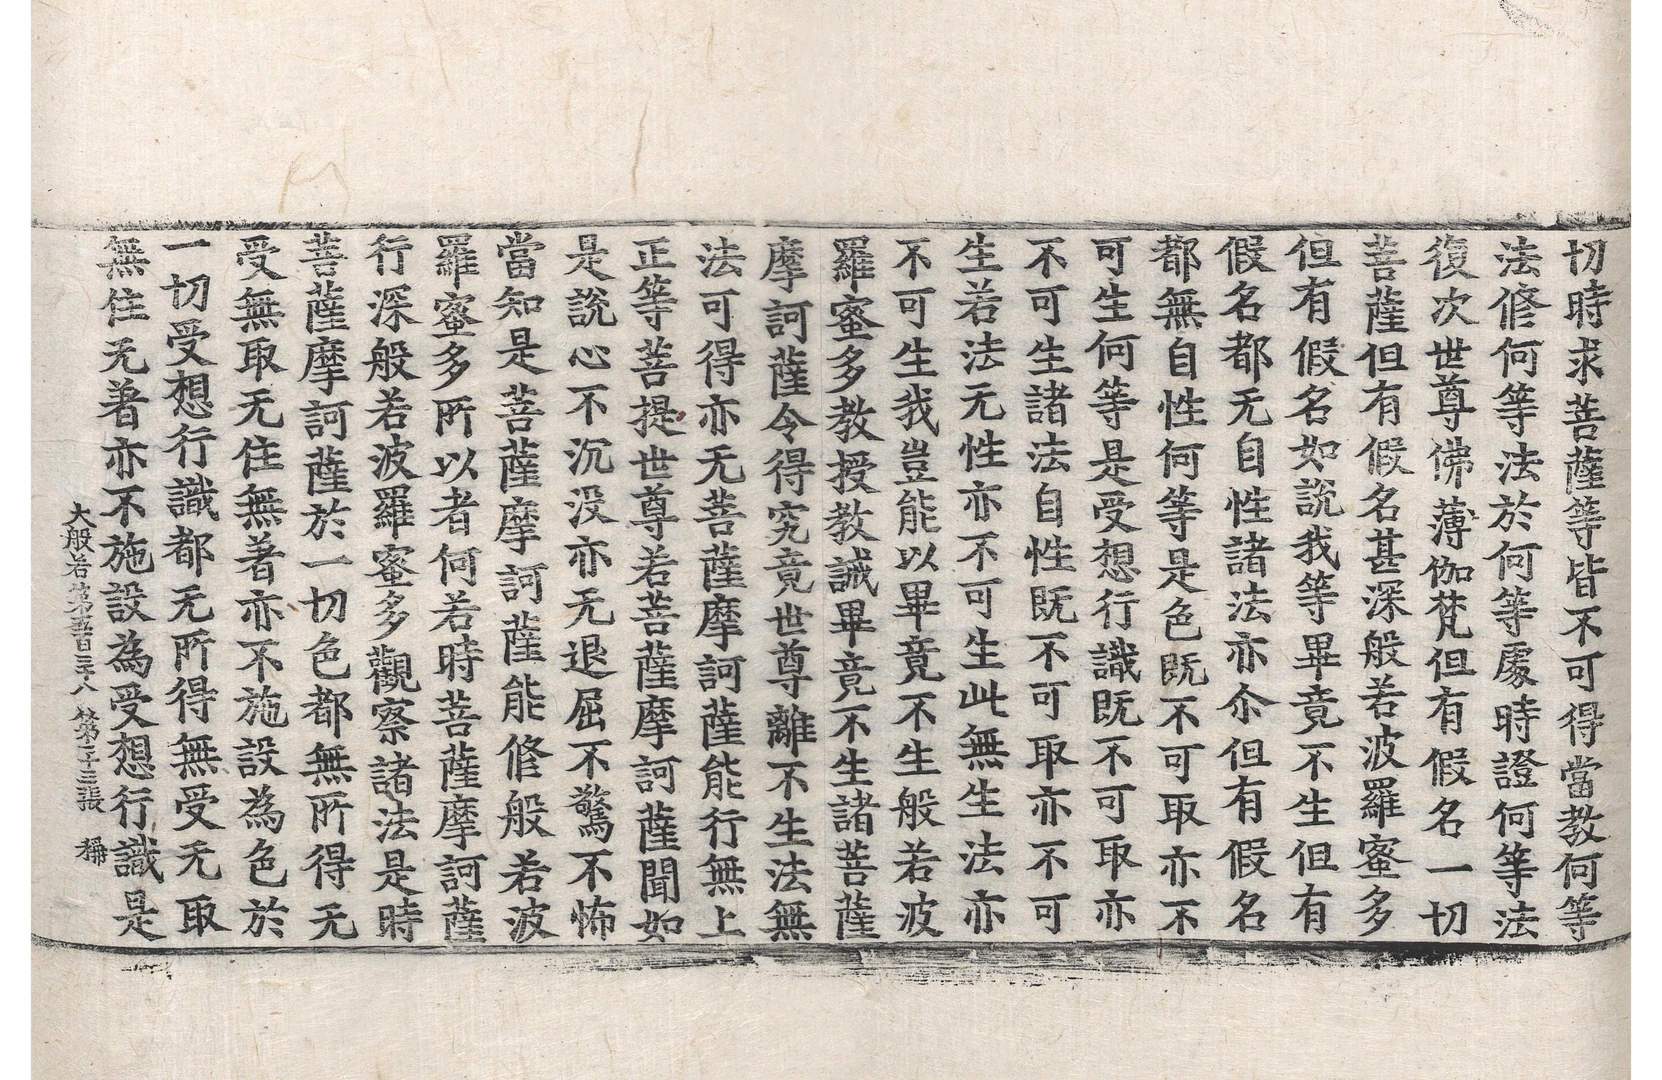 切時求菩薩等皆不可得當教何等
法修何等法於何等處時證何等法
復次世尊佛薄伽梵但有假名一切
菩薩但有假名甚深般若波羅蜜多
但有假名如說我等畢竟不生但有
假名都无自性諸法亦尒但有假名
都無自性何等是色既不可取亦不
可生何等是受想行識既不可取亦
不可生諸法自性既不可取亦不可
生若法无性亦不可生此無生法亦
不可生我豈能以畢竟不生般若波
羅蜜多教授教誡畢竟不生諸菩薩
摩訶薩令得究竟世尊離不生法無
法可得亦无菩薩摩訶薩能行無上
正等菩提世尊若菩薩摩訶薩聞如
是說心不沉没亦无退屈不驚不怖
當知是菩薩摩訶薩能修般若波
羅蜜多所以者何若時菩薩摩訶薩
行深般若波羅蜜多觀察諸法是時
菩薩摩訶薩於一切色都無所得无
受無取无住無著亦不施設為色於
一切受想行識都无所得無受无取
無住无著亦不施設為受想行識是
大般若第五百三十八 第二十三張 稱